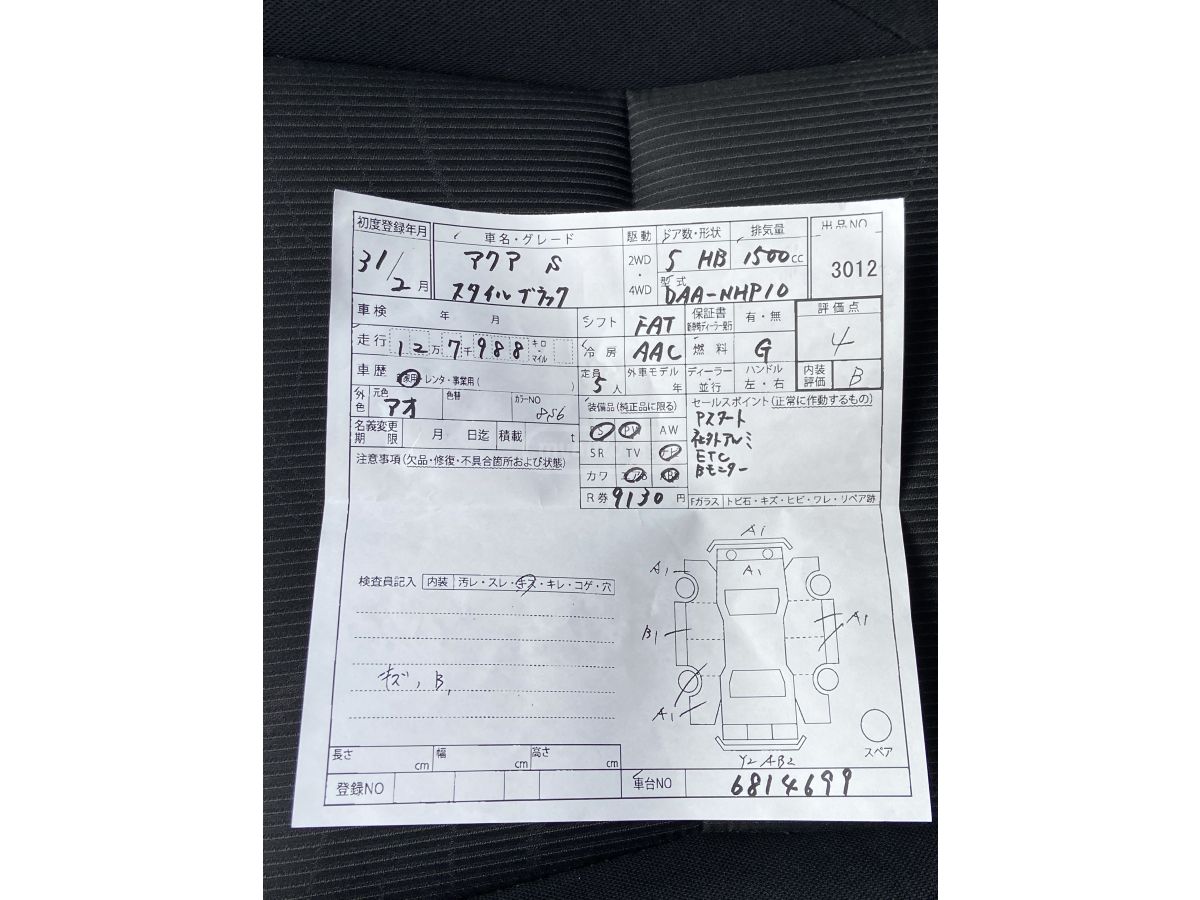 初度登録年月 車名・グレード 駆動 ドア数・形状 排気量 出品NO
31/2月 アクア S 2WD・4WD 5 HB 1500cc 3012
スタイルブラック 型式 DAA-NHP10
車検 年 月 シフト FAT 保証書 有・無 評価点 4
走行 12万7千988 キロ・マイル 冷房 AAC 燃料 G
車歴 自家用 レンタ・事業用( ) 定員 5人 外車モデル 年 ディーラー・並行 ハンドル 左・右 内装評価 B
外色 元色 アオ 色替 カラーNO 8S6 装備品(純正品に限る) セールスポイント(正常に作動するもの)
名義変更期限 月 日迄 積載 t PS PW AW Pスタート
SR TV 社外アルミ
注意事項(欠品・修復・不具合箇所および状態) カワ ETC
Bモニター
R券 9130円 Fガラス トビ石・キズ・ヒビ・ワレ・リペア跡
検査員記入 内装 汚レ・スレ・キズ・キレ・コゲ・穴
A1
A1 A1
B1 A1
キズ, B,
A1
Y2 AB2
スペア
長さ cm 幅 cm 高さ cm
登録NO 車台NO 6814699